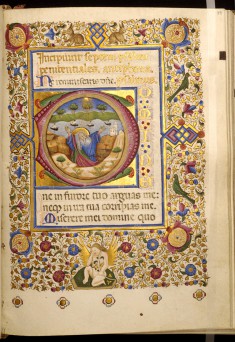 Incipiunt septem psalmi
penitentiales. antiphona.
Ne reminiscaris dñe.
D
O
M
I
N
E
ne in furore tuo arguas me:
neq; in ira tua corripias me.
Miserere mei domine quo